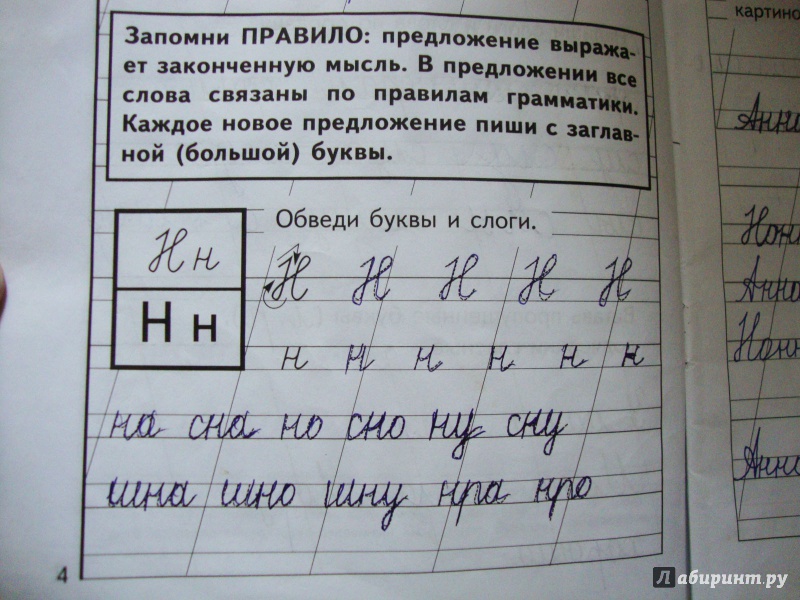 Запомни ПРАВИЛО: предложение выража-
ет законченную мысль. В предложении все
слова связаны по правилам грамматики.
Каждое новое предложение пиши с заглав-
ной (большой) буквы.
Обведи буквы и слоги.
Н н
Н Н Н Н Н
Н н
н н н н н н
на сна но сно ну сну
шна шно шну нра нро
4
картино
Анн
Нонн
Анна
Нонн
Анн
Лабиринт.ру